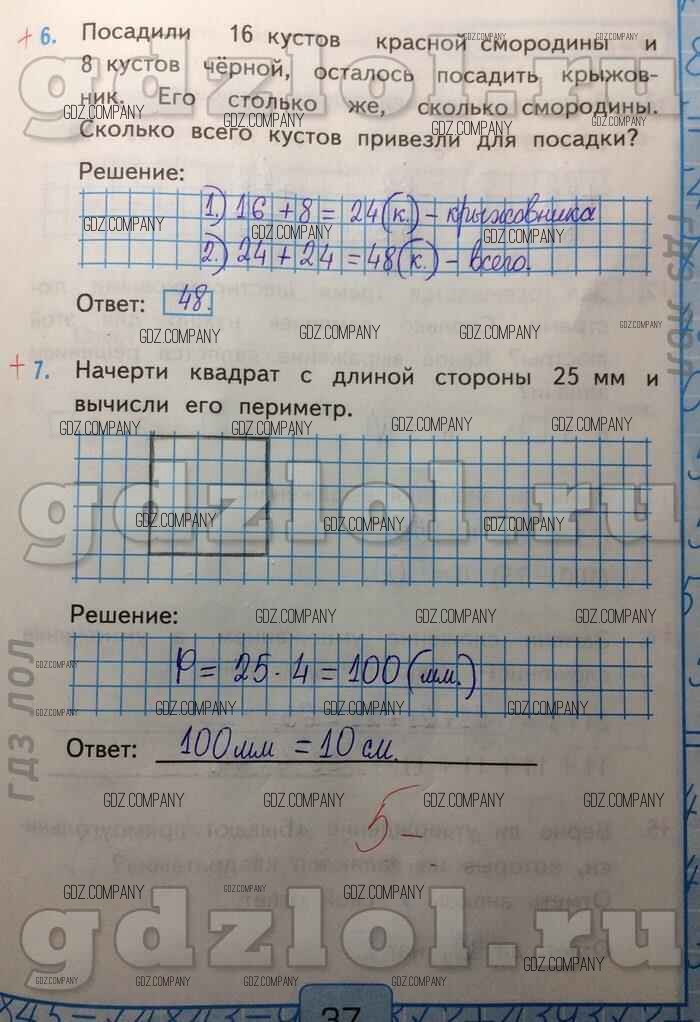 6. Посадили 16 кустов красной смородины и
8 кустов чёрной, осталось посадить крыжов-
ник. Его столько же, сколько смородины.
Сколько всего кустов привезли для посадки?
Решение:
1.) 16 + 8 = 24 (к.) - крыжовника
2.) 24 + 24 = 48 (к.) - всего.
Ответ: 48.
7. Начерти квадрат с длиной стороны 25 мм и
вычисли его периметр.
Решение:
P = 25 · 4 = 100 (мм.)
Ответ: 100 мм = 10 см.
5-
37
gdzlol.ru
GDZ.COMPANY
ГДЗ ЛОЛ